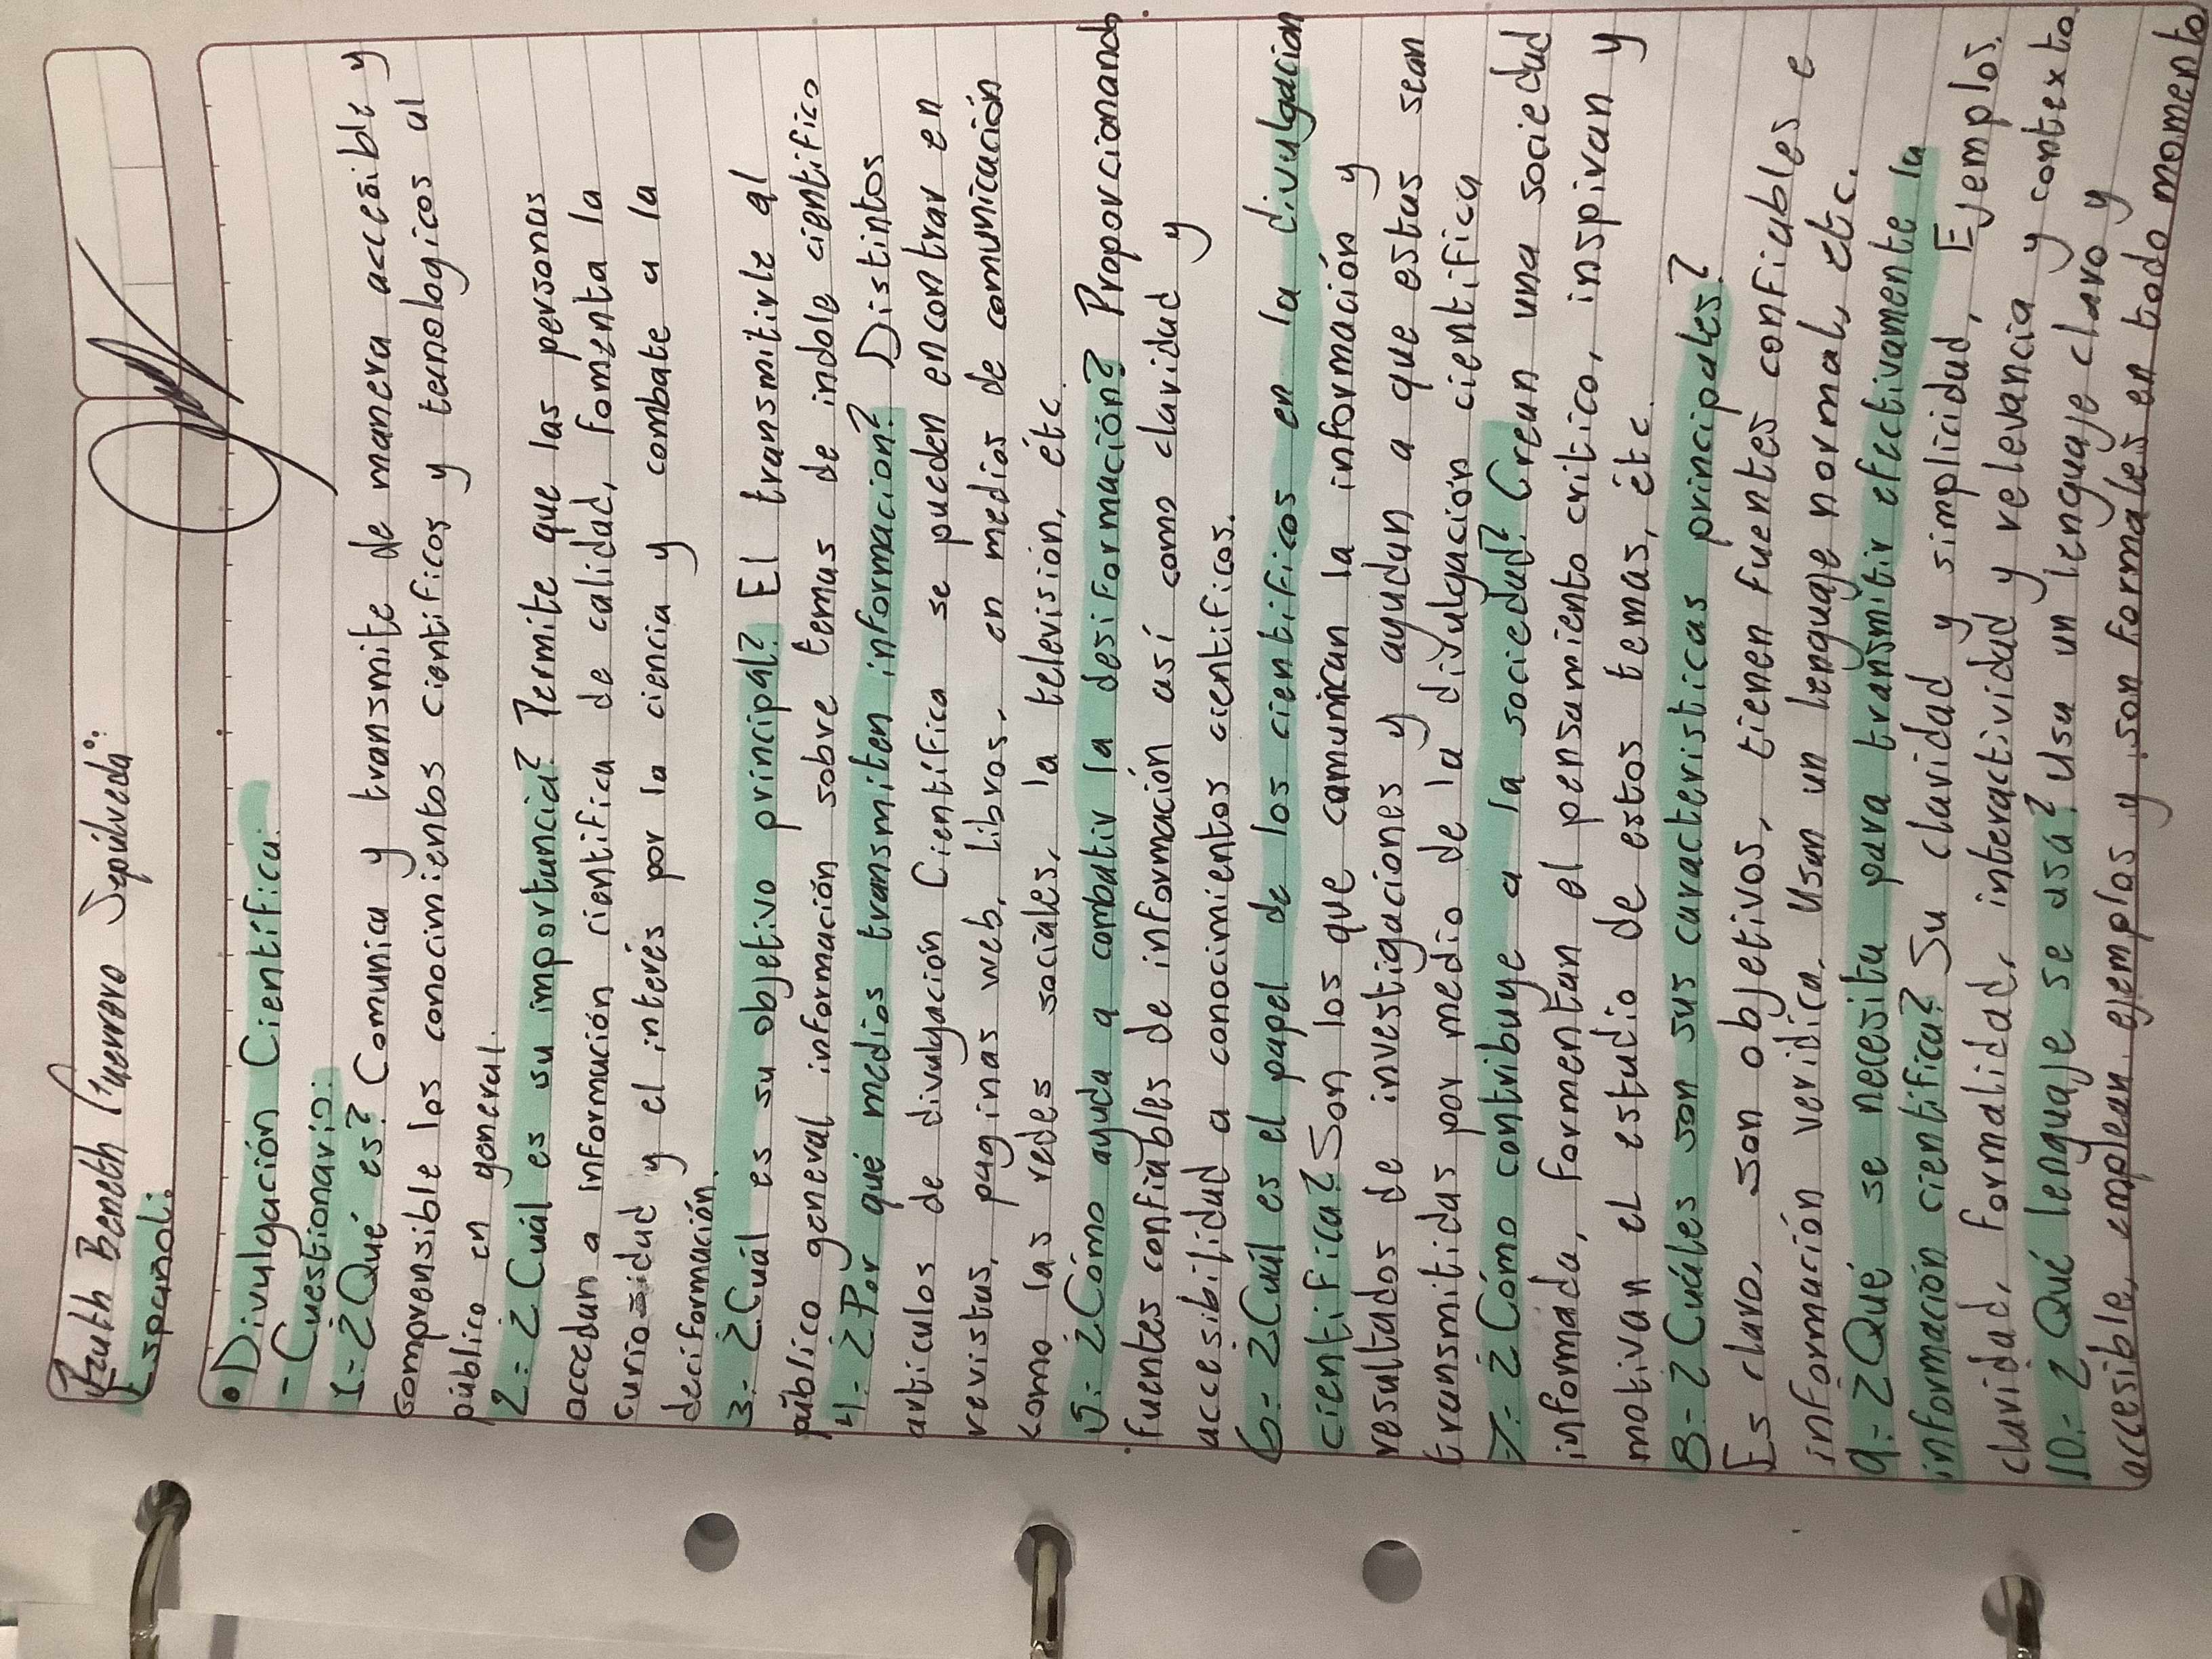 Beneth Guerrero Sepúlveda:
Español:
• Divulgación Científica:
- Cuestionario:
1.- ¿Qué es? Comunica y transmite de manera accesible y
comprensible los conocimientos cientificos y tecnologicos al
público en general.
2.- ¿Cuál es su importancia? Permite que las personas
accedan a información cientifica de calidad, fomenta la
curiosidad y el interés por la ciencia y combate a la
deciformación.
3.- ¿Cuál es su objetivo principal? El transmitirle al
público general información sobre temas de indole cientifico
4.- ¿Por qué medios transmiten informacion? Distintos
articulos de divulgación Científica se pueden encontrar en
revistas, paginas web, libros, en medios de comunicación
como las redes sociales, la televisión, étc.
5.- ¿Cómo ayuda a combatir la desiformación? Proporcionando
fuentes confiables de información así como claridad y
accesibilidad a conocimientos cientificos.
6.- ¿Cuál es el papel de los cientificos en la divulgacion
cientifica? Son los que comunican la información y
resultados de investigaciones y ayudan a que estas sean
transmitidas por medio de la divulgación cientifica
7.- ¿Cómo contribuye a la sociedad? Crean una sociedad
informada, formentan el pensamiento critico, inspiran y
motivan el estudio de estos temas, étc.
8.- ¿Cuáles son sus caracteristicas principales?
Es claro, son objetivos, tienen fuentes confiables e
información veridica, usan un lenguaje normal, étc.
9.- ¿Qué se necesita para transmitir efectivamente la
información cientifica? Su claridad y simplicidad, Ejemplos,
claridad, formalidad, interactividad y relevancia y contexto
10.- ¿Qué lenguaje se usa? Usa un lenguaje claro y
accesible, emplean ejemplos y son formales en todo momento